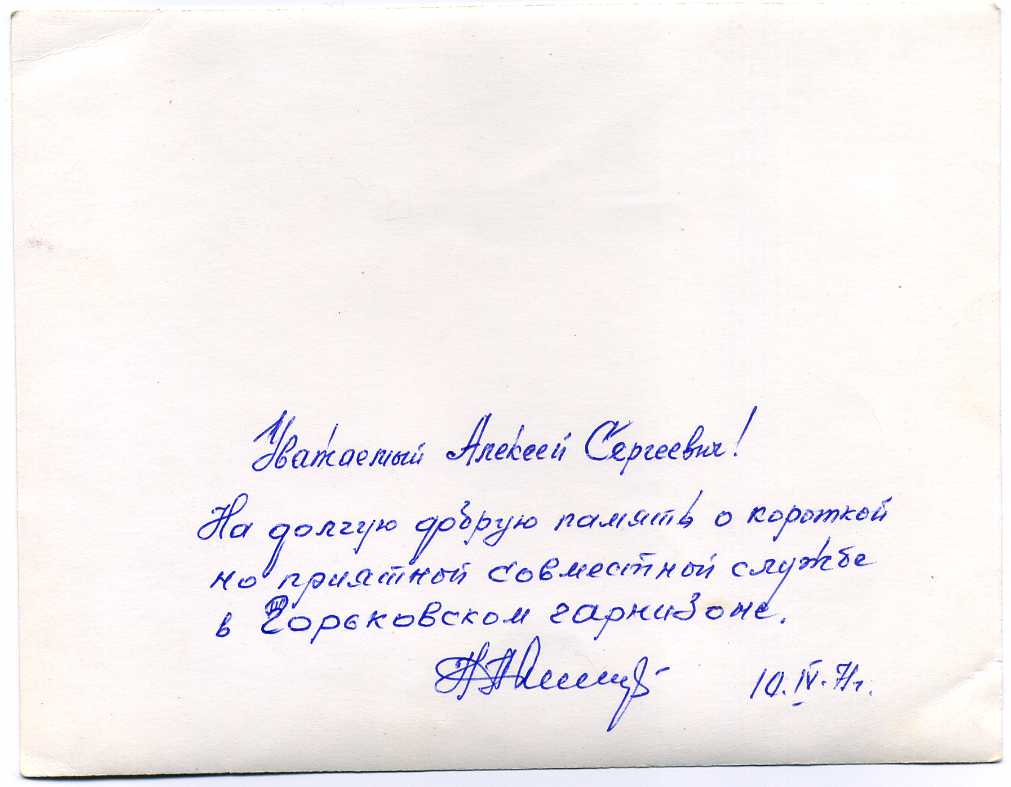 Уважаемый Алексей Сергеевич!
На долгую добрую память о короткой
но приятной совместной службе
в Горьковском гарнизоне.
10.IV.71г.